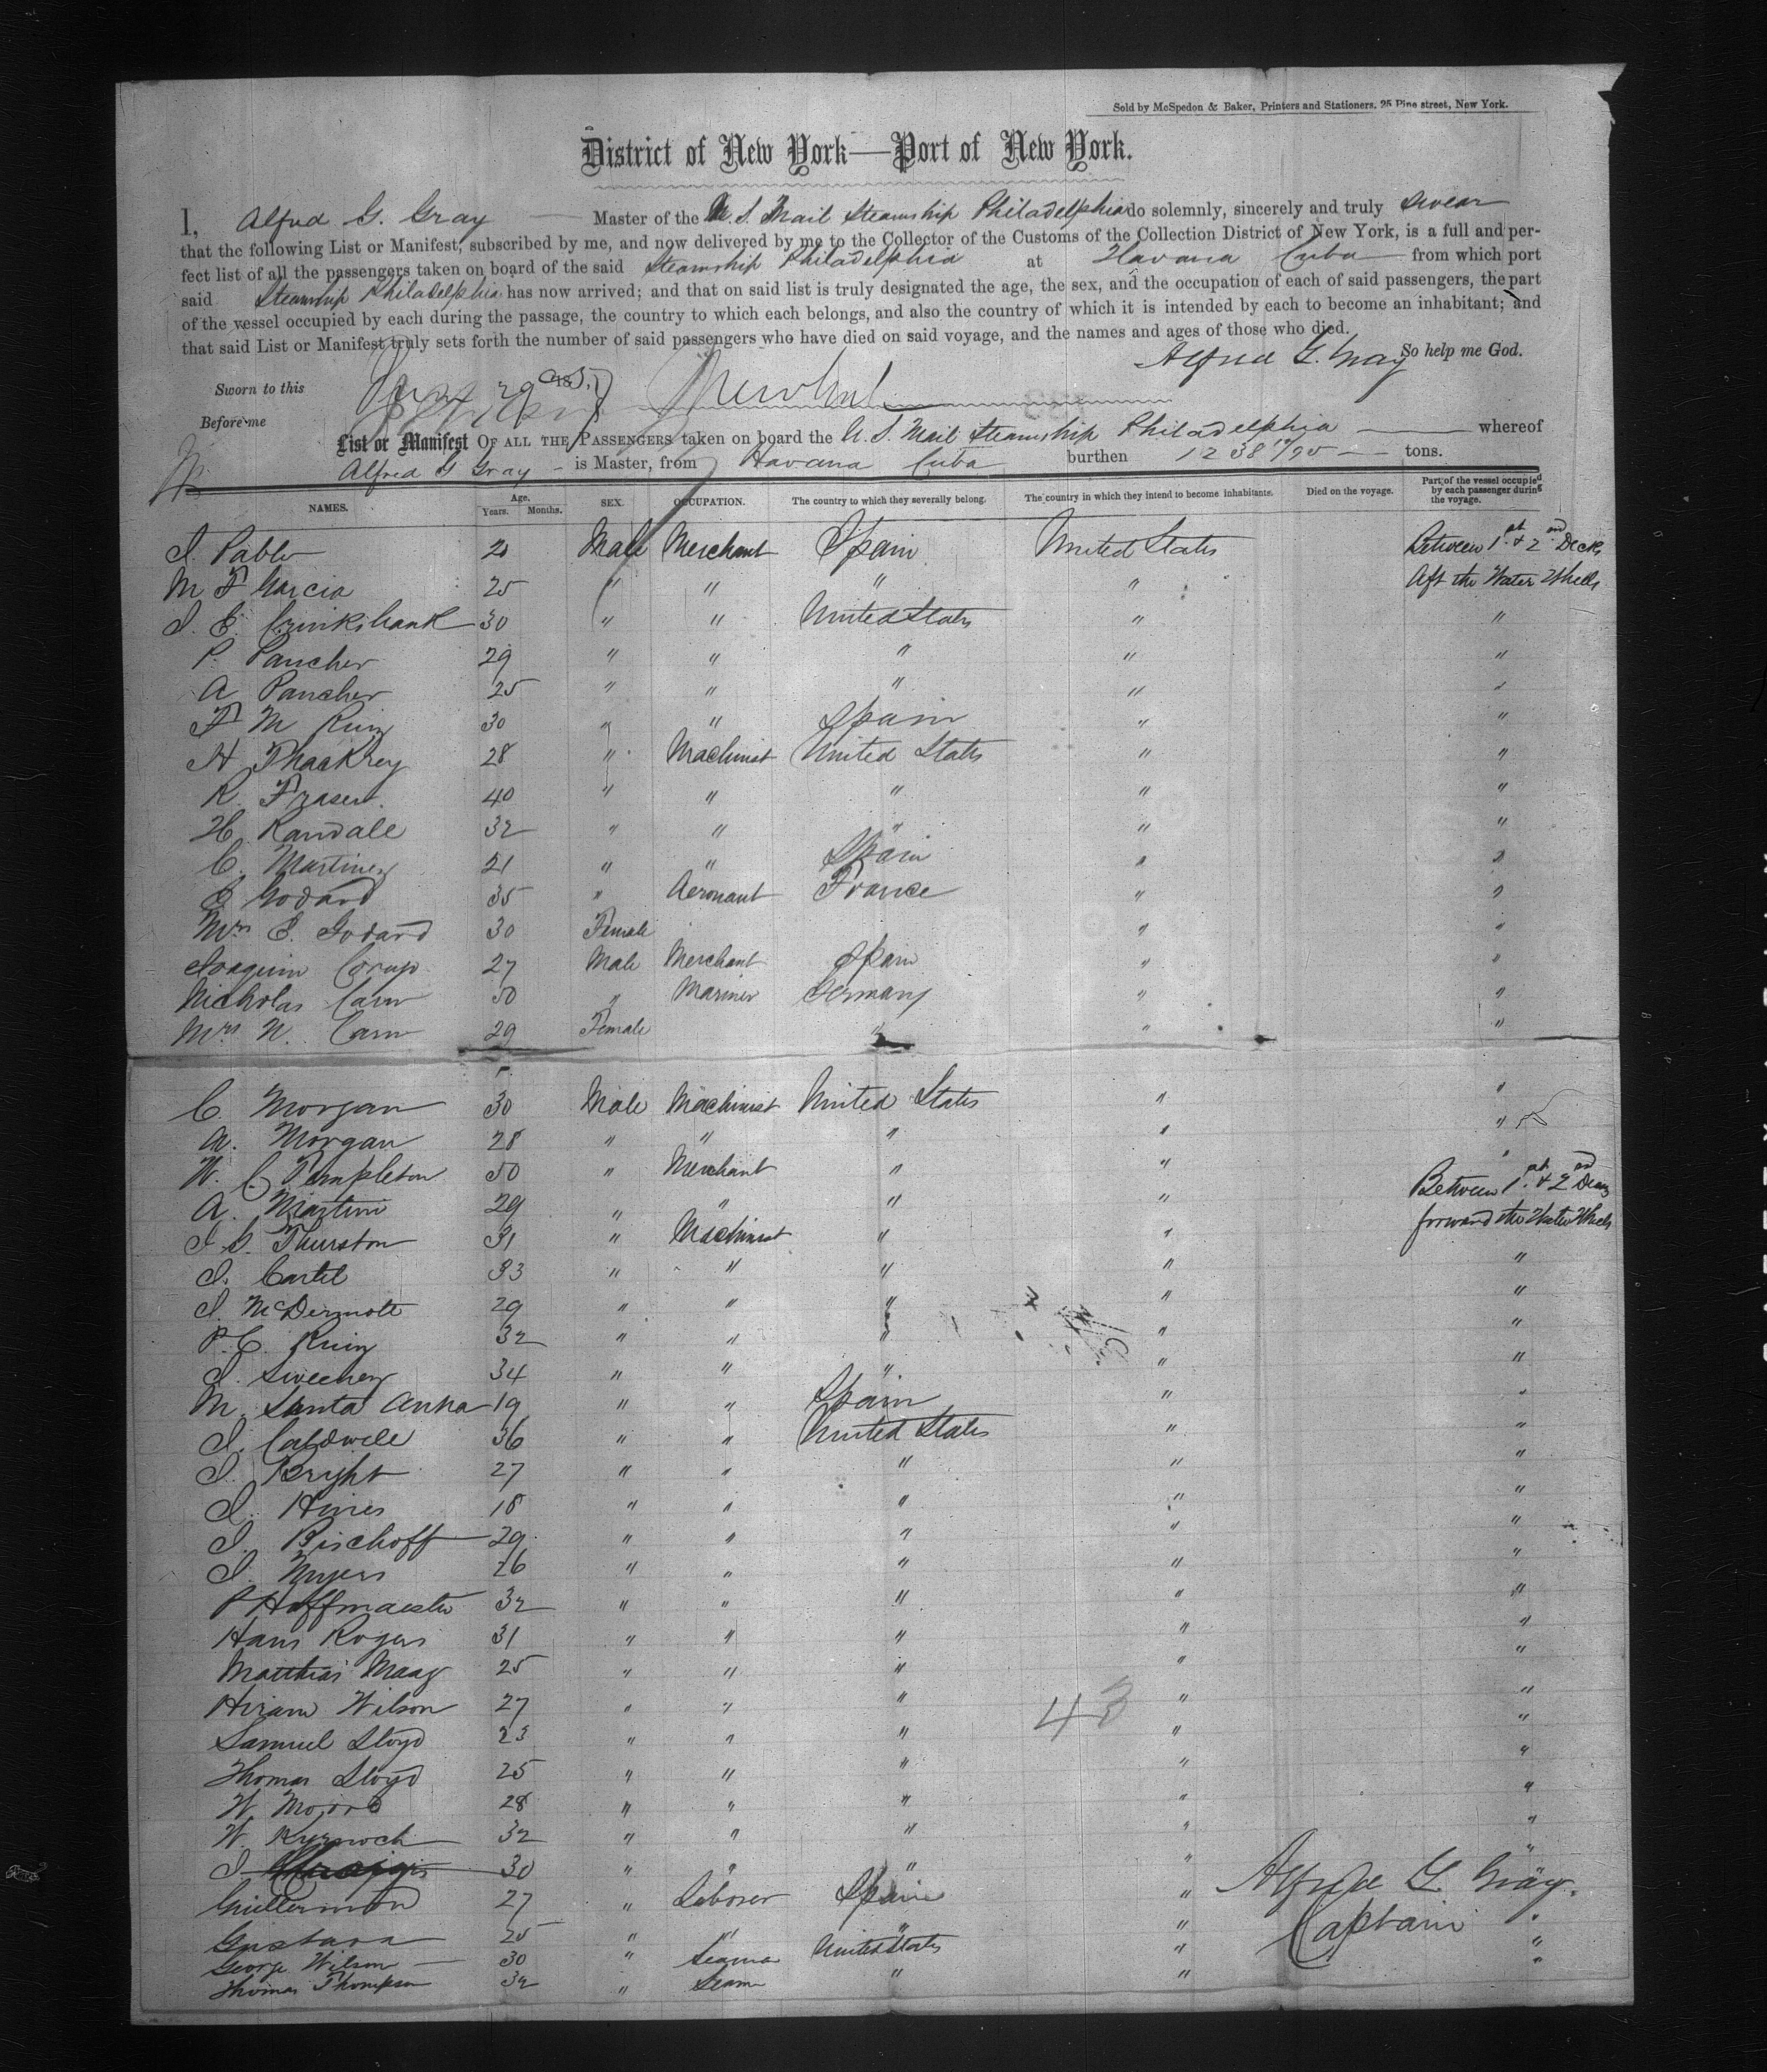 Sold by McSpedon & Baker, Printers and Stationers, 25 Pine street, New York.
District of New York—Port of New York.
I, Alfred G. Gray Master of the U. S. Mail Steamship Philadelphia do solemnly, sincerely and truly swear
that the following List or Manifest, subscribed by me, and now delivered by me to the Collector of the Customs of the Collection District of New York, is a full and per-
fect list of all the passengers taken on board of the said Steamship Philadelphia at Havana Cuba from which port
said Steamship Philadelphia has now arrived; and that on said list is truly designated the age, the sex, and the occupation of each of said passengers, the part
of the vessel occupied by each during the passage, the country to which each belongs, and also the country of which it is intended by each to become an inhabitant; and
that said List or Manifest truly sets forth the number of said passengers who have died on said voyage, and the names and ages of those who died.
Alfred G. Gray So help me God.
Sworn to this 29
Before me
List or Manifest OF ALL THE PASSENGERS taken on board the U. S. Mail Steamship Philadelphia whereof
Alfred G Gray is Master, from Havana Cuba burthen 1238 /95 tons.
NAMES. Age. Years. Months. SEX. OCCUPATION. The country to which they severally belong. The country in which they intend to become inhabitants. Died on the voyage. Part of the vessel occupied by each passenger during the voyage.
J. Pablo 20 Male Merchant Spain United States Between 1st & 2nd Decks
M F Garcia 25 " " " " Aft the Water Wheels
J. E. Crinkshank 30 " " United States " "
P. Pancher 29 " " " " "
A Pancher 25 " " " " "
F M Ruiz 30 " " Spain " "
H Thackrey 28 " Machinist United States " "
R. Fraser 40 " " " " "
H. Randall 32 " " " " "
C. Martinez 21 " " Spain " "
E Godard 35 " Aeronaut France " "
Mrs E. Godard 30 Female " "
Joaquin 27 Male Merchant Spain " "
Nicholas Carr 50 " Mariner Germany " "
Mrs N. Carr 29 Female " " "
C. Morgan 30 Male Machinist United States " "
A. Morgan 28 " " " " "
W. C. Templeton 50 " Merchant " " "
A. Martini 29 " " " " Between 1st & 2nd Decks
J. G. Thurston 31 " Machinist " " forward the Water Wheels
J. 33 " " " " "
J. McDermott 29 " " " " "
P. C. Ruiz 32 " " " " "
J. Sweeney 34 " " " " "
M. Santa Anna 19 " " Spain " "
J. Caldwell 36 " " United States " "
J. Bright 27 " " " " "
J. Hines 18 " " " " "
J. Bischoff 29 " " " " "
J. Myers 26 " " " " "
P Hoffmaester 32 " " " " "
Hans Rogers 31 " " " " "
Matthias Maag 25 " " " " "
Hiram Wilson 27 " " " " "
43
Samuel Lloyd 23 " " " " "
Thomas Lloyd 25 " " " " "
W. 28 " " " " "
W. Kyrnoch 32 " " " " "
J 30 " " " " "
Guillermon 27 " Laborer Spain " Alfred G. Gray.
Gustava 25 " " " " Captain "
George Wilson 30 " Seaman United States " "
Thomas Thompson 32 " Seam " " "